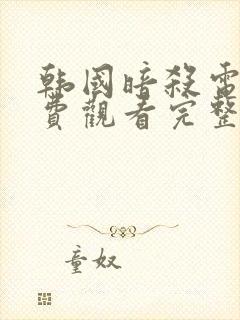 韩國暗殺電
費觀看完整
童奴